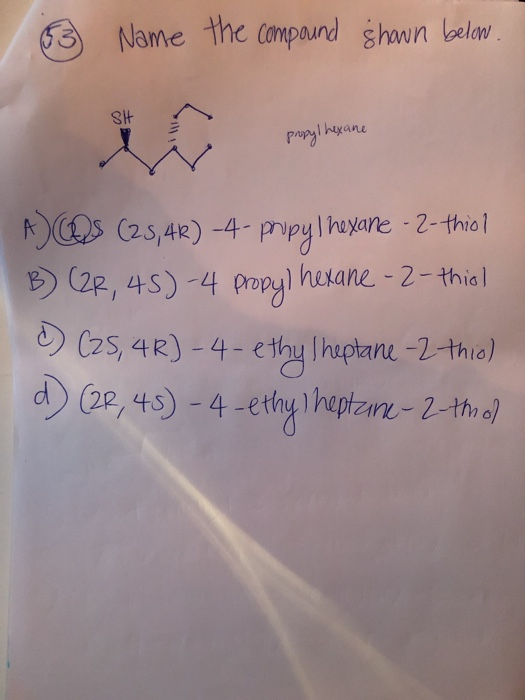 53 Name the compound shown below.
SH
propyl hexane
A) (2S,4R) -4- propylhexane -2-thiol
B) (2R, 4S) -4 propyl hexane -2-thiol
c) (2S, 4R) -4-ethylheptane -2 thiol
d) (2R, 4S) -4-ethylheptane-2-thiol